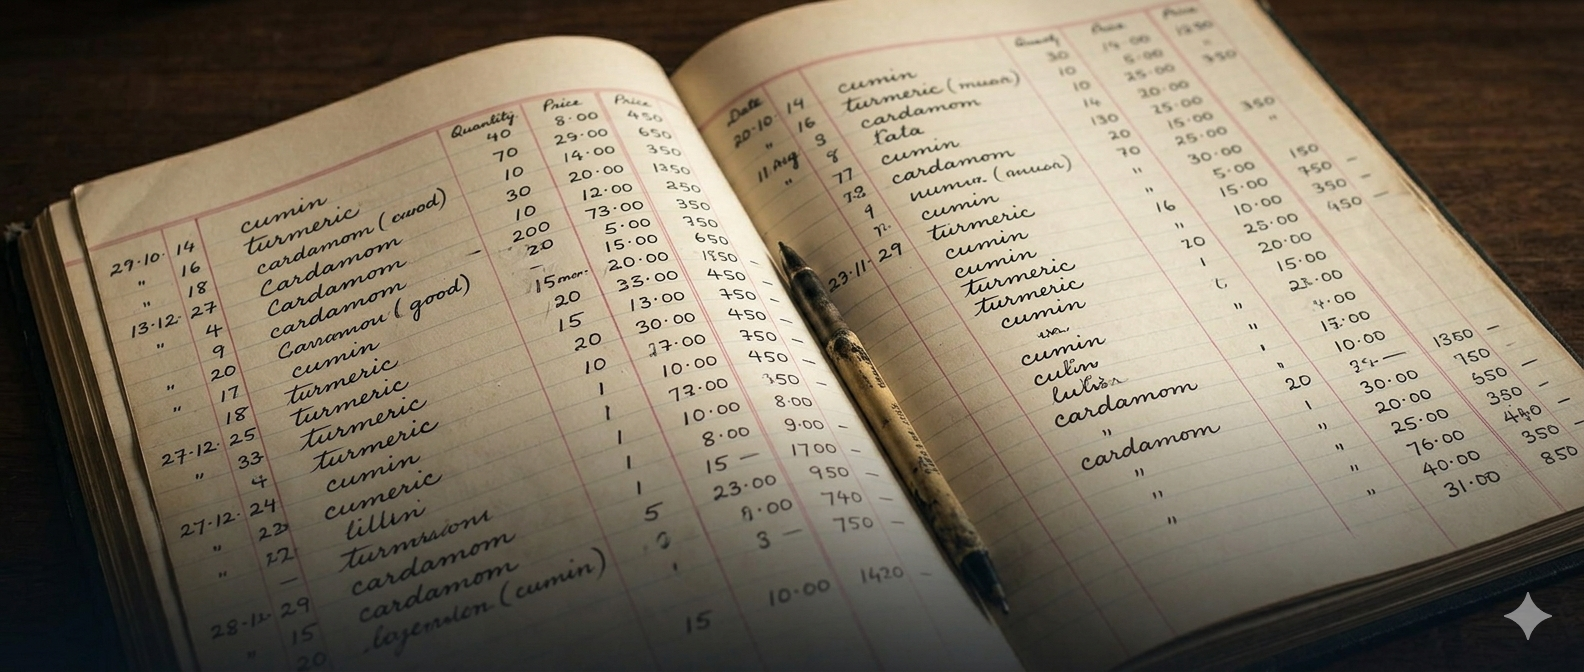 Quantity Price Price
29.10. 14 cumin 40 8.00 450
" 16 turmeric 70 29.00 650
" 18 cardamom 10 14.00 350
13-12. 27 Cardamom 30 20.00 1350
" 4 Cardamom 10 12.00 250
9 cardamom 200 73.00 350
" 20 (good) - 20 5.00 750
" 17 cumin 15 15.00 650
18 turmeric 20 20.00 1850 -
27-12. 25 turmeric 15 33.00 450
" 33 turmeric 20 13.00 750 -
4 turmeric 10 30.00 450 -
27-12. 24 cumin 1 750 -
" 23 cumeric 1 10.00 450 -
" lillin 1 72.00 350 -
— 1 10.00 8.00
29 cardamom 1 8.00 9.00 -
15 cardamom 5 15 — 1700 -
" 20 (cumin) 23.00 950 -
740 -
3 — 750 -
15 10.00 1420 -
Date Quantity Price Price
20-10. 14 cumin 30 19.00 1250
" 16 turmeric (muon) 10 5.00 "
11 Aug 3 cardamom 10 25.00 350
" 8 tata 14 20.00
77 cumin 130 25.00 350
cardamom 20 15.00 "
9 (muon) 70 25.00
cumin " 30.00 150 -
23-11. 29 turmeric 16 5.00 750 -
cumin " 15.00 350 -
cumin 20 10.00 450 -
turmeric 1 25.00
turmeric 20.00
cumin " 15.00
cumin "
4.00
cardamom 20 10.00
" 1 1350 -
cardamom " 30.00 750 -
" " 20.00 650 -
" " 25.00 350 -
" " 76.00
40.00 350 -
31.00 850